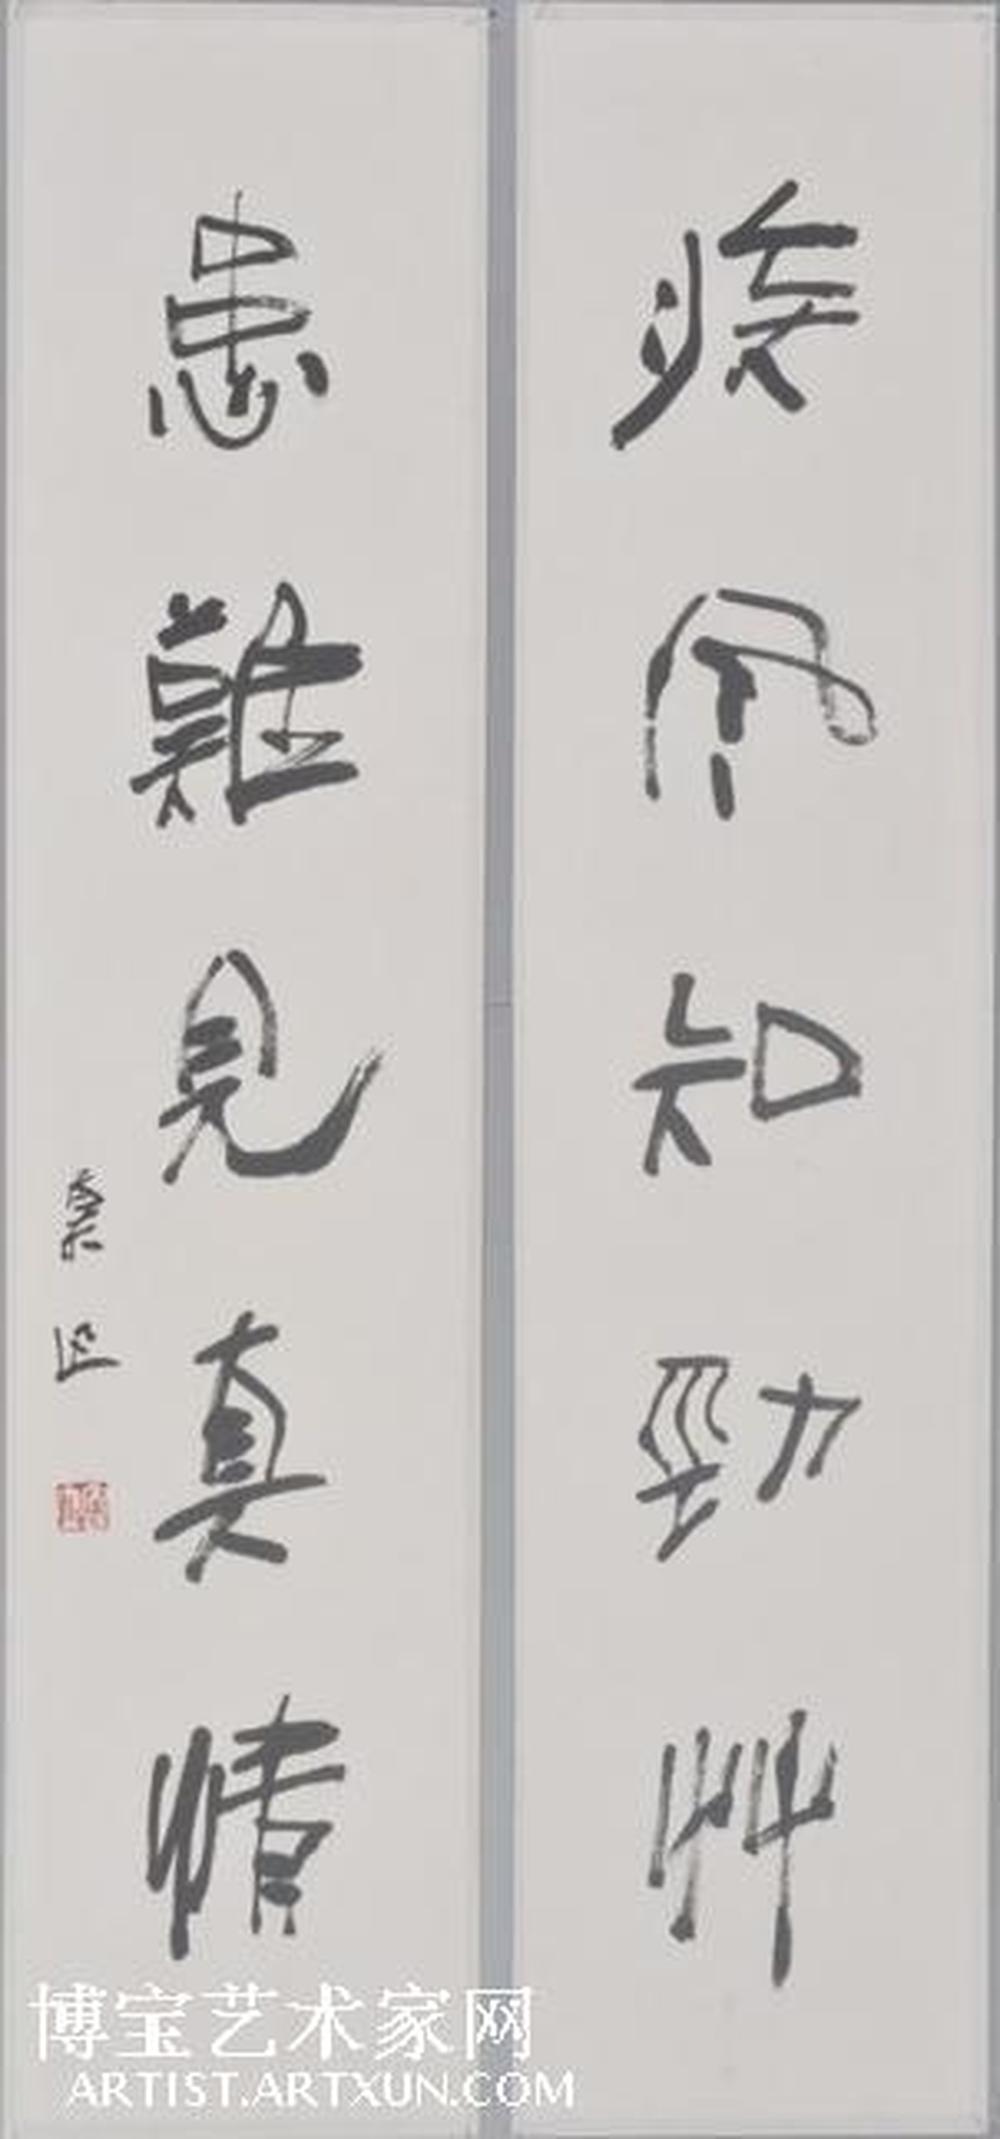 疾风知勁艸
患難見真情
博宝艺术家网
ARTIST.ARTXUN.COM